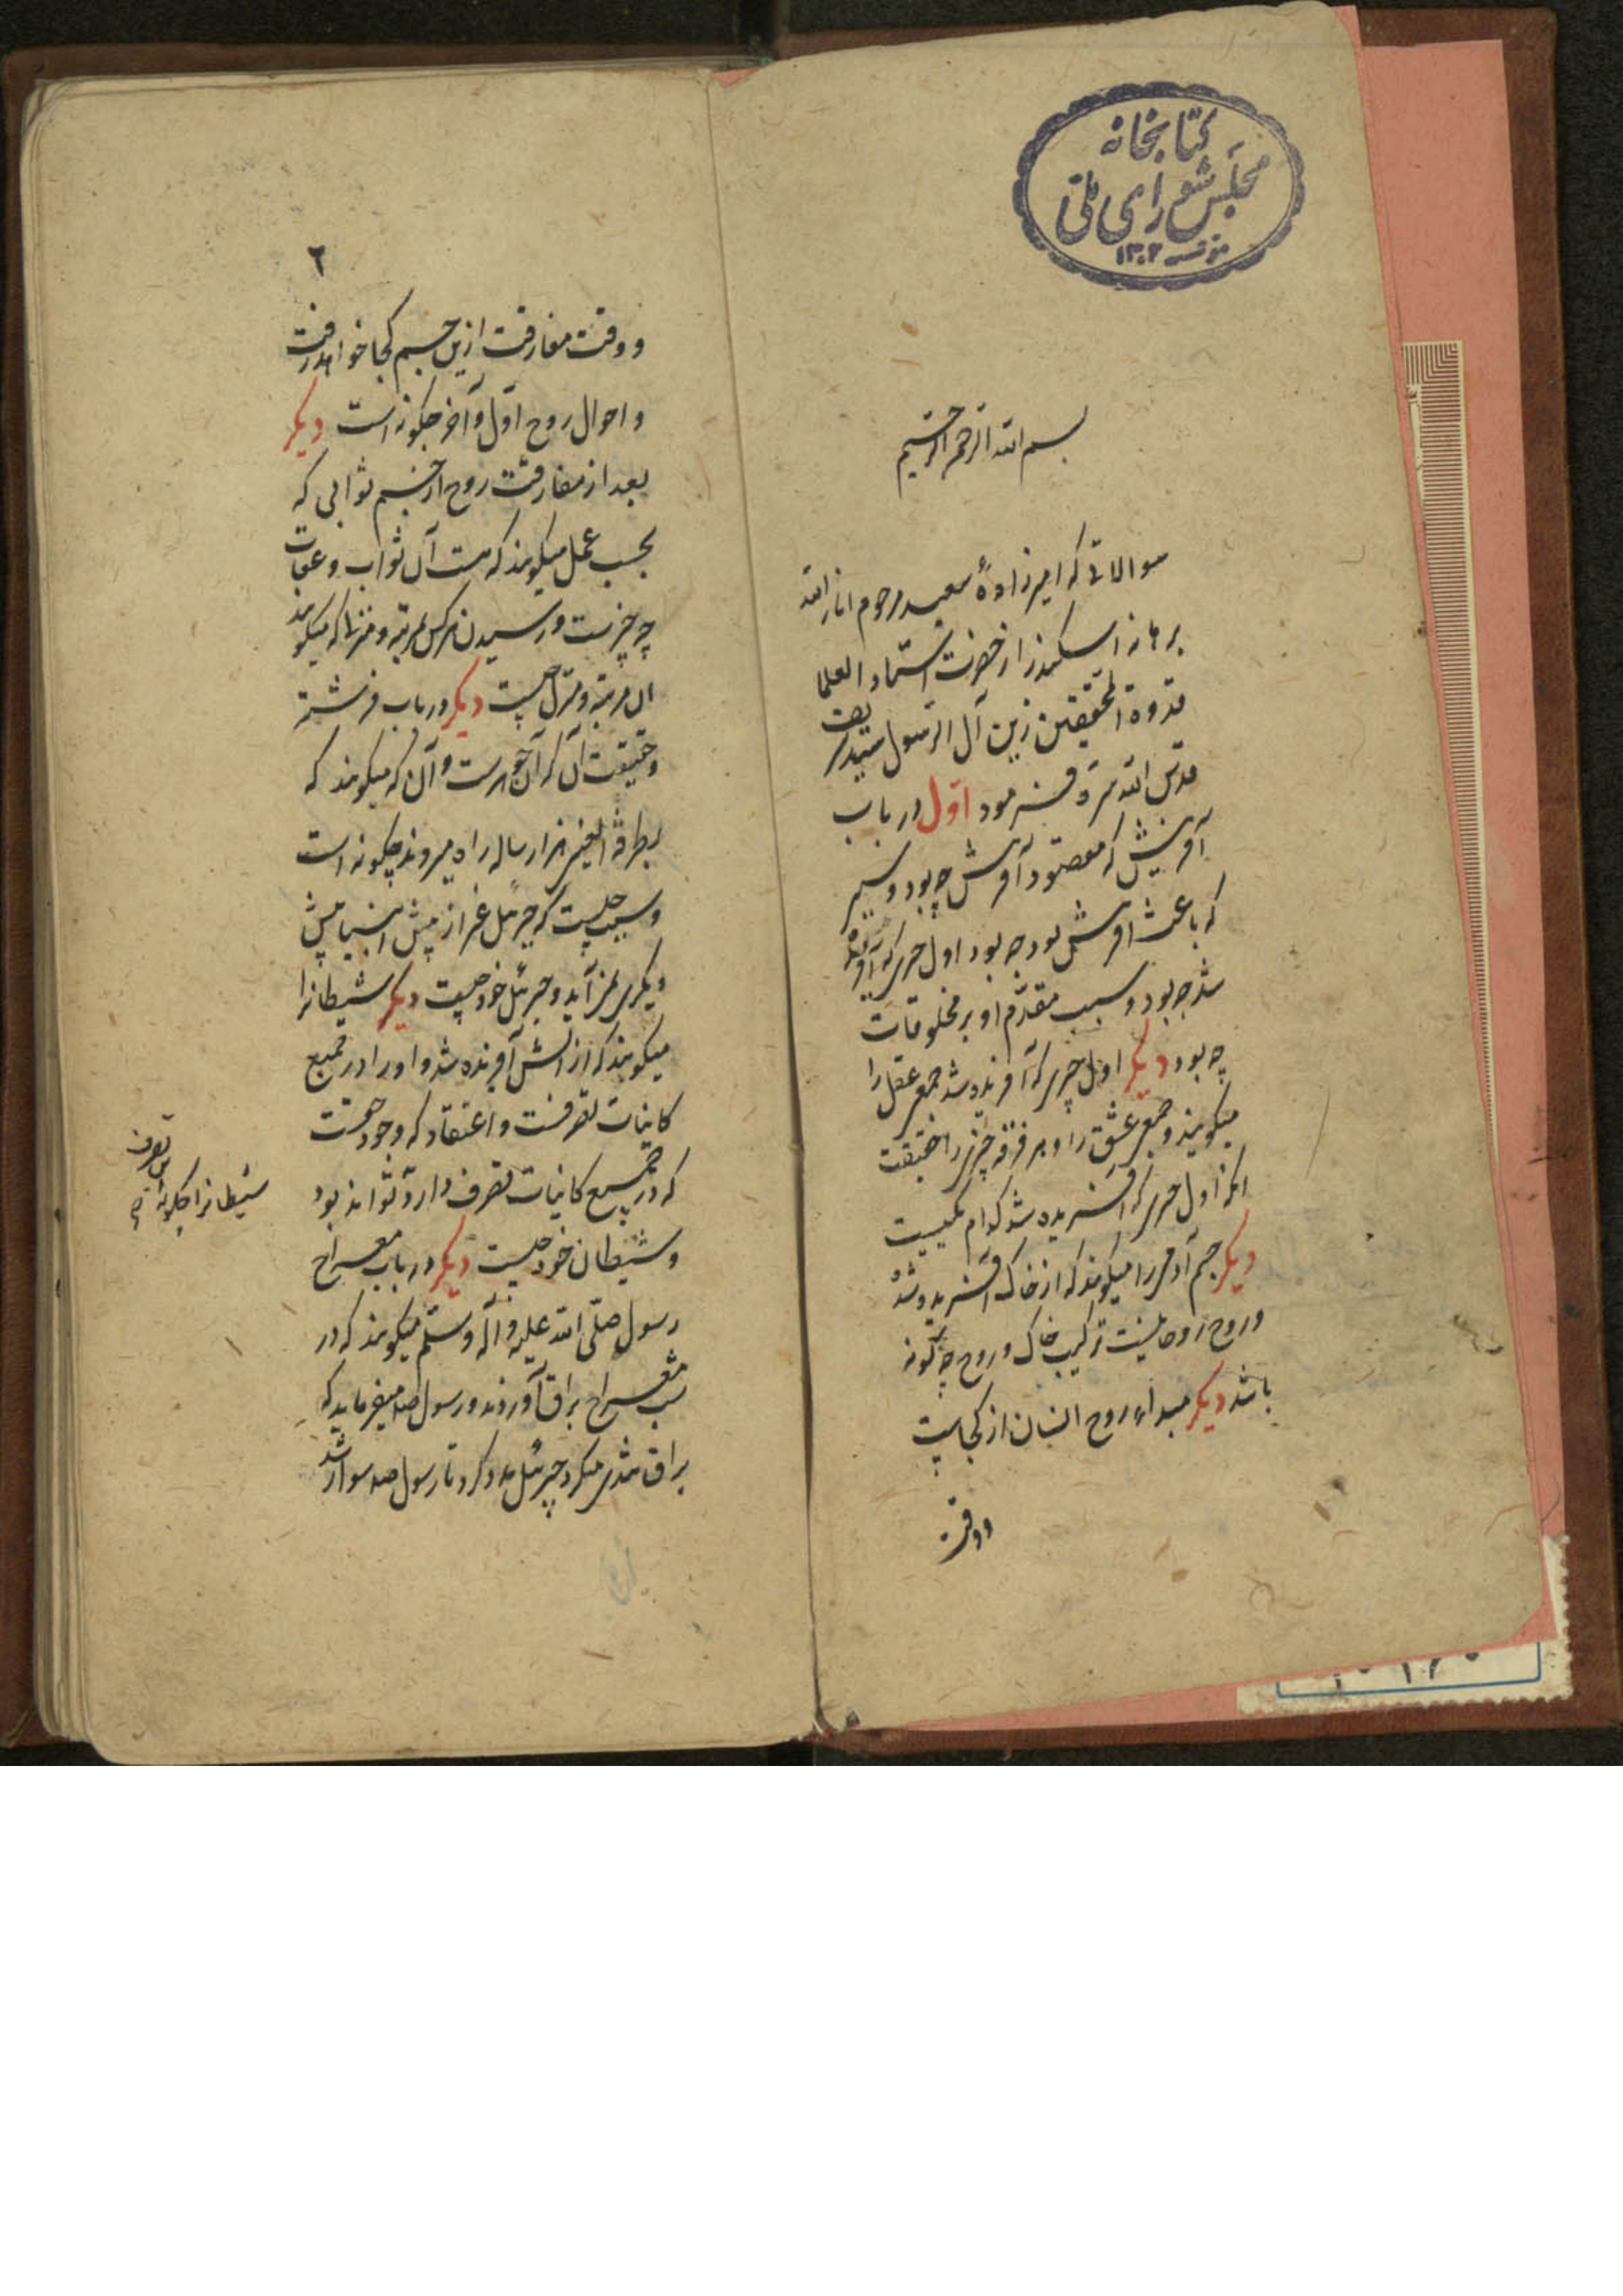 کتابخانه
مجلس شورای ملی
مؤسسه ۱۳۰۲
بسم الله الرحمن الرحیم
سوالاتی که امیرزادهٔ سعید مرحوم انار الله
برهانه اسکندر از حضرت استاد العلما
قدوة المحققین زین آل الرسول سید شریف
قدس الله سره فرمود اول در باب
آفرینش که مقصود آفرینش چه بود و سبب
که باعث آفرینش بود چه بود اول چیزی که آفریده
شد چه بود و سبب مقدم او بر مخلوقات
چه بود دیگر اول چیزی که آفریده شد جمعی عقل را
میکویند و جمعی عشق را و هر فرقه چیزی را حقیقت
انکه اول چیزی که آفریده شد کدام یکیست
دیگر جسم آدمی را میکویند که از خاک آفریده شد
و روح روحانیست ترکیب خاک و روح چه کونه
باشد دیگر مبداء روح انسان از کجاست
ووقت
۲
ووقت مفارقت ازین جسم کجا خواهد رفت
و احوال روح اول و آخر چکونه است دیگر
بعد از مفارقت روح از جسم ثوابی که
بحسب عمل میکویند که هست آن ثواب و عقاب
چه چیزست و رسیدن هرکس بمرتبه و منزلها که میکویند
آن مرتبه و منزل چیست دیگر در باب فرشته
و حقیقت آن که آن جوهرست و آن که میکویند که
بطرفة العینی هزار ساله راه میروند چکونه است
و سبب چیست که جبرئیل غیر از پیش انبیا پیش
دیکری نمی‌آید و جبرئیل خود چیست دیگر شیطانرا
میکویند که از آتش آفریده شد و او را در جمیع
کاینات تصرفست و اعتقاد که وجود هست
که در جمیع کاینات تصرف دارد تواند بود
و شیطان خود چیست دیگر در باب معراج
رسول صلی الله علیه و آله وسلم میکویند که در
شب معراج براق آوردند و رسول صلعم میفرماید که
براق تندی میکرد جبرئیل مدد کرد تا رسول صلعم سوار شد
تصرف
شیطانرا چکونه